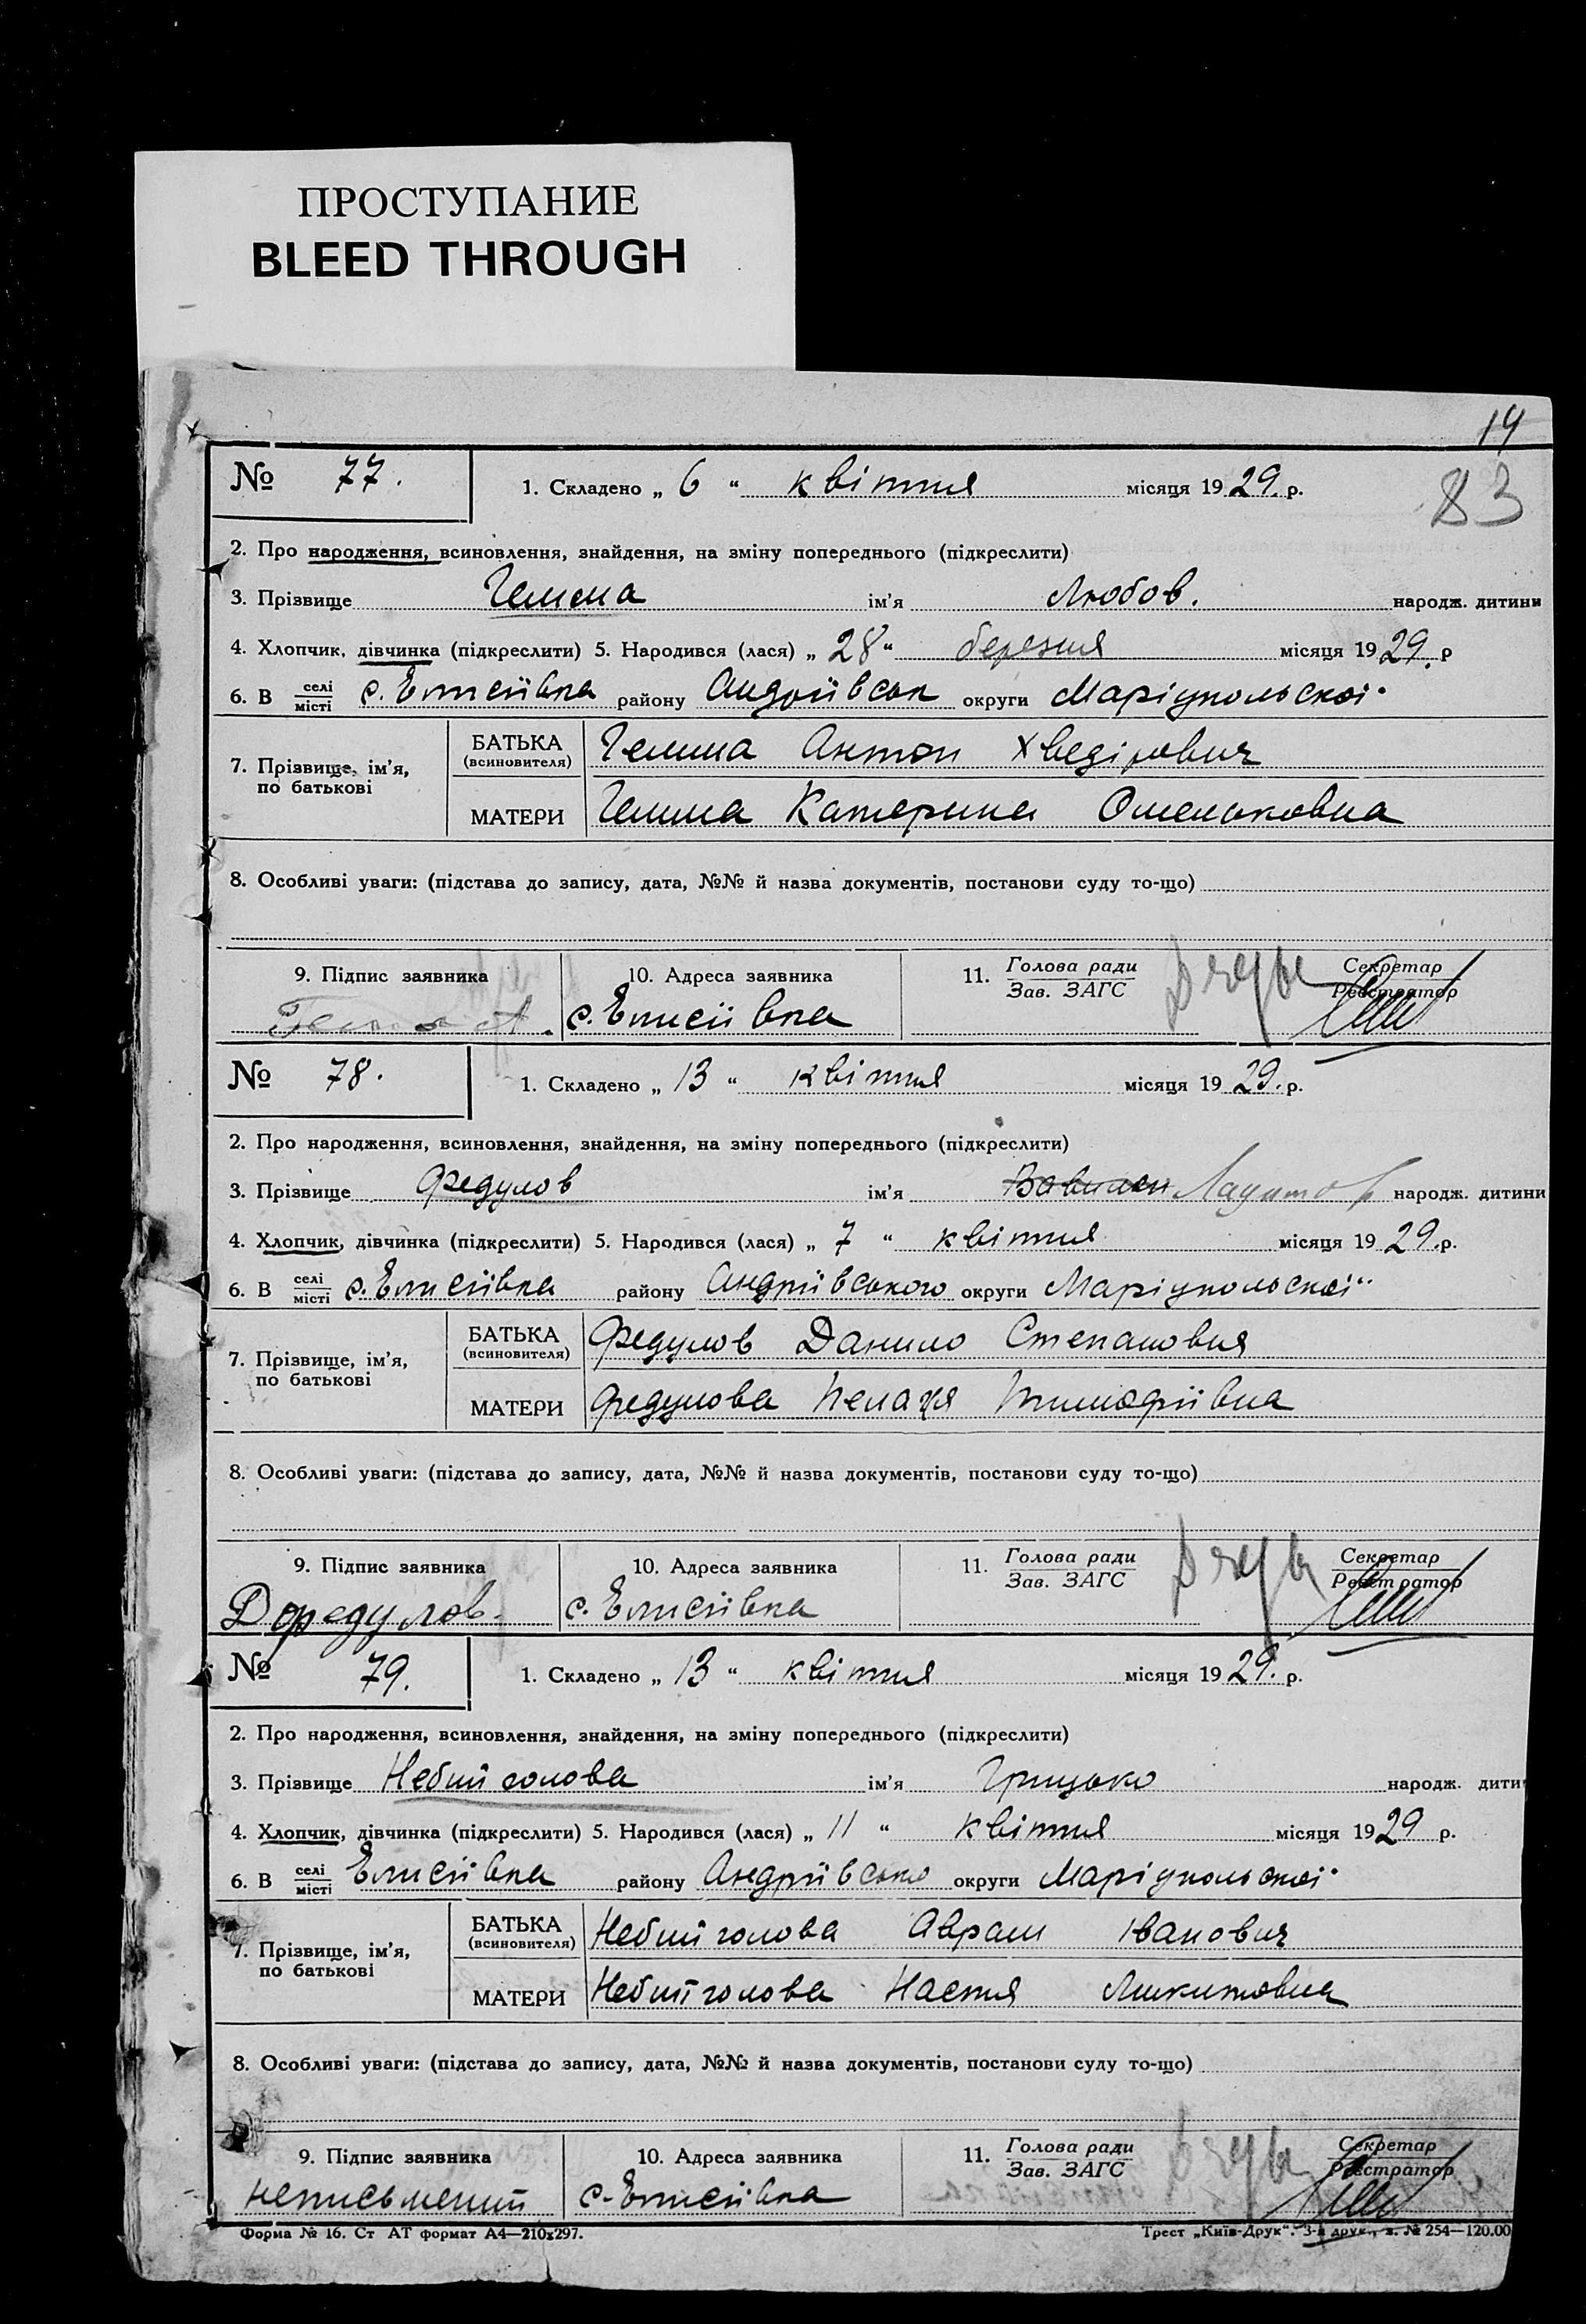 ПРОСТУПАНИЕ
BLEED THROUGH
14
83
№ 77. 1. Складено „ 6 “ квітня місяця 1929. р.
2. Про народження, всиновлення, знайдення, на зміну попереднього (підкреслити)
3. Прізвище ім'я Любов. народж. дитини
4. Хлопчик, дівчинка (підкреслити) 5. Народився (лася) „ 28 “ березня місяця 1929. р
6. В селі місті с. Елисіївка району округи Маріупольскої
7. Прізвище, ім'я, по батькові
БАТЬКА (всиновителя) Антон Хведірович
МАТЕРИ Катерина Омельковна
8. Особливі уваги: (підстава до запису, дата, №№ й назва документів, постанови суду то-що)
9. Підпис заявника 10. Адреса заявника 11. Голова ради Зав. ЗАГС Секретар Реєстратор
с. Елисіївка
№ 78. 1. Складено „ 13 “ квітня місяця 1929. р.
2. Про народження, всиновлення, знайдення, на зміну попереднього (підкреслити)
3. Прізвище Федулов ім'я народж. дитини
4. Хлопчик, дівчинка (підкреслити) 5. Народився (лася) „ 7 “ квітня місяця 1929. р.
6. В селі місті с. Елисіївка району Андріївського округи Маріупольскої
7. Прізвище, ім'я, по батькові
БАТЬКА (всиновителя) Федулов Данило Степанович
МАТЕРИ Федулова Пелагя Тимофіївна
8. Особливі уваги: (підстава до запису, дата, №№ й назва документів, постанови суду то-що)
9. Підпис заявника 10. Адреса заявника 11. Голова ради Зав. ЗАГС Секретар Реєстратор
Д Федулов. с. Елисіївка
№ 79. 1. Складено „ 13 “ квітня місяця 1929. р.
2. Про народження, всиновлення, знайдення, на зміну попереднього (підкреслити)
3. Прізвище Небийголова ім'я Грицько народж. дити
4. Хлопчик, дівчинка (підкреслити) 5. Народився (лася) „ 11 “ квітня місяця 1929 р.
6. В селі місті Елисіївка району округи Маріупольскої
7. Прізвище, ім'я, по батькові
БАТЬКА (всиновителя) Небийголова Аврам Іванович
МАТЕРИ Небийголова Настя Микитовна
8. Особливі уваги: (підстава до запису, дата, №№ й назва документів, постанови суду то-що)
9. Підпис заявника 10. Адреса заявника 11. Голова ради Зав. ЗАГС Секретар Реєстратор
неписьмений с. Елисіївка
Форма № 16. Ст АТ формат А4—210х297. Трест „Київ-Друк“. 3-я друк., з. № 254—120.00